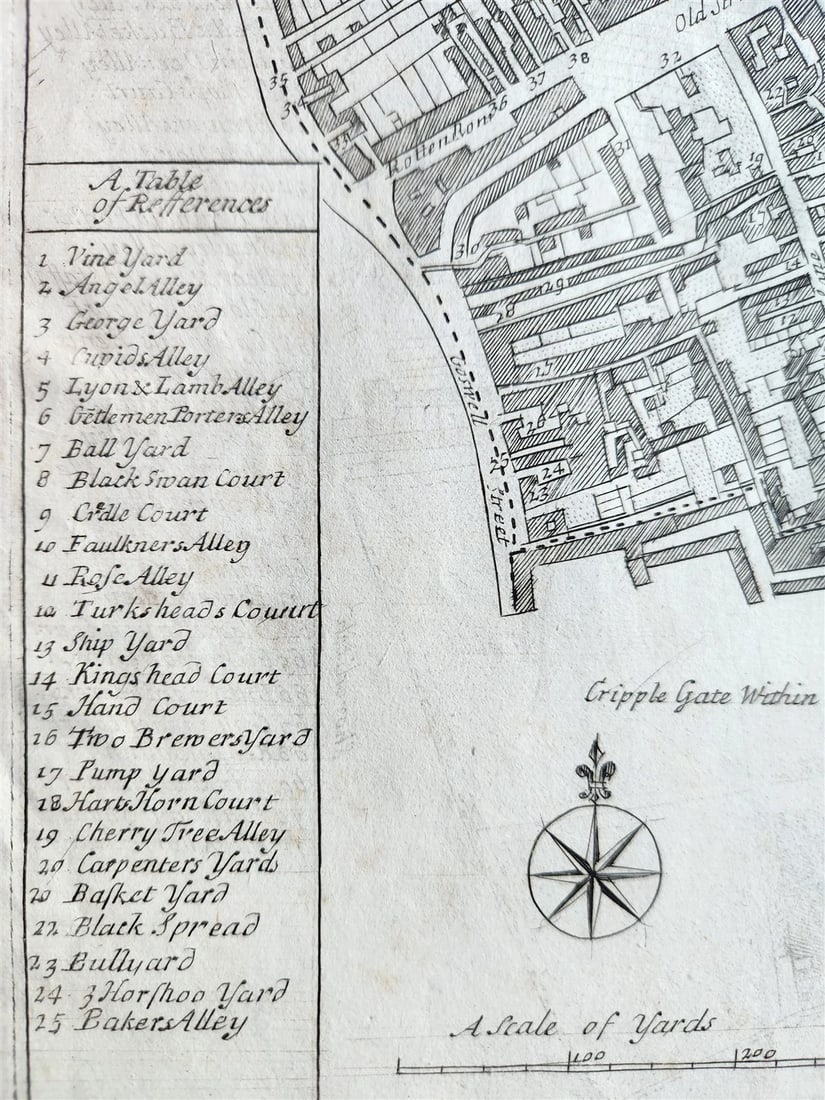 A Table
of Refferences
1 Vine Yard
2 Angel Alley
3 George Yard
4 Cupids Alley
5 Lyon & Lamb Alley
6 Gētlemen Porters Alley
7 Ball Yard
8 Black Swan Court
9 Cradle Court
10 Faulkners Alley
11 Rose Alley
12 Turksheads Couurt
13 Ship Yard
14 Kings head Court
15 Hand Court
16 Two Brewers Yard
17 Pump yard
18 Harts Horn Court
19 Cherry Tree Alley
20 Carpenters Yards
20 Basket Yard
22 Black Spread
23 Bullyard
24 3 Horshoo Yard
25 Bakers Alley
Old
35
34
39
Rotten Row
36
37
38
32
31
30
29
28
27
26
25
24
23
22
19
17
14
13
12
Goswell Street
Cripple Gate Within
A Scale of Yards
100
200